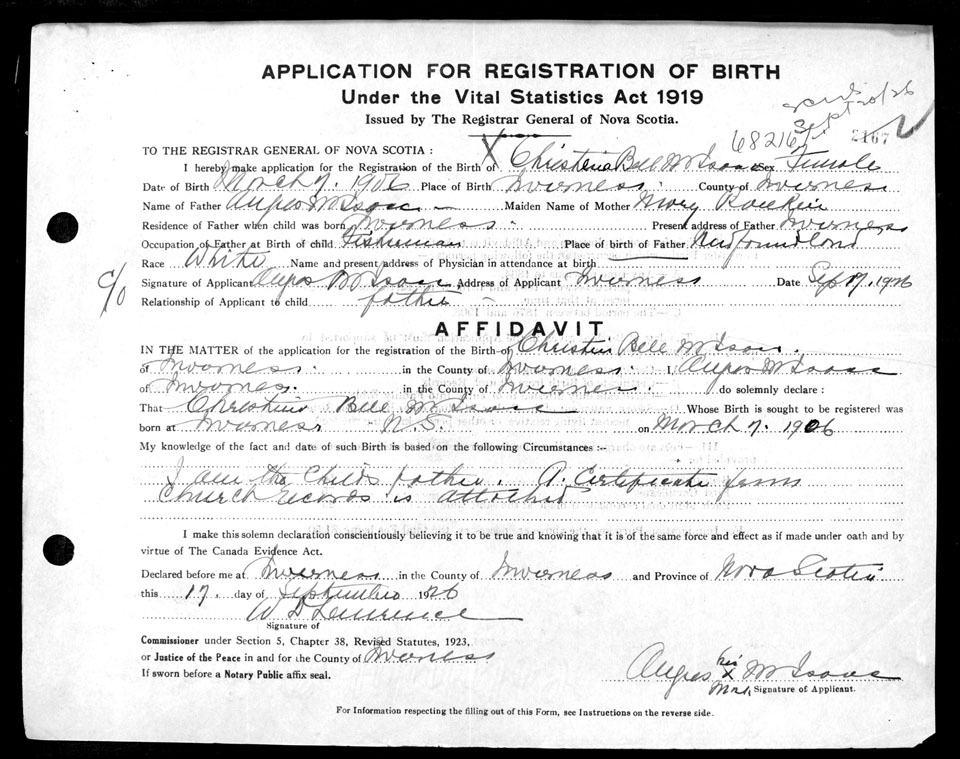 APPLICATION FOR REGISTRATION OF BIRTH
Under the Vital Statistics Act 1919
Issued by The Registrar General of Nova Scotia.
Sept 20/26
68216
2167
TO THE REGISTRAR GENERAL OF NOVA SCOTIA :
I hereby make application for the Registration of the Birth of X Christena Bell McIsaac Sex Female
Date of Birth March 7, 1906 Place of Birth Inverness. County of Inverness
Name of Father Angus McIsaac Maiden Name of Mother Mary
Residence of Father when child was born Inverness. Present address of Father Inverness
Occupation of Father at Birth of child Fisherman Place of birth of Father Newfoundland
Race White Name and present address of Physician in attendance at birth
c/o
Signature of Applicant Angus McIsaac Address of Applicant Inverness Date Sep 17, 1926
Relationship of Applicant to child father
AFFIDAVIT
IN THE MATTER of the application for the registration of the Birth of Christena Bell McIsaac.
of Inverness. in the County of Inverness. I, Angus McIsaac
of Inverness. in the County of Inverness. do solemnly declare :
That Christena Bell McIsaac Whose Birth is sought to be registered was
born at Inverness N.S. on March 7. 1906
My knowledge of the fact and date of such Birth is based on the following Circumstances :—
I am the Childs father. A Certificate from
Church records is attached
I make this solemn declaration conscientiously believing it to be true and knowing that it is of the same force and effect as if made under oath and by
virtue of The Canada Evidence Act.
Declared before me at Inverness in the County of Inverness and Province of Nova Scotia
this 17. day of September 1926
W D Lawrence
Signature of
Commissioner under Section 5, Chapter 38, Revised Statutes, 1923,
or Justice of the Peace in and for the County of Inverness
If sworn before a Notary Public affix seal.
his
Angus X McIsaac
Mark
Signature of Applicant.
For Information respecting the filling out of this Form, see Instructions on the reverse side.